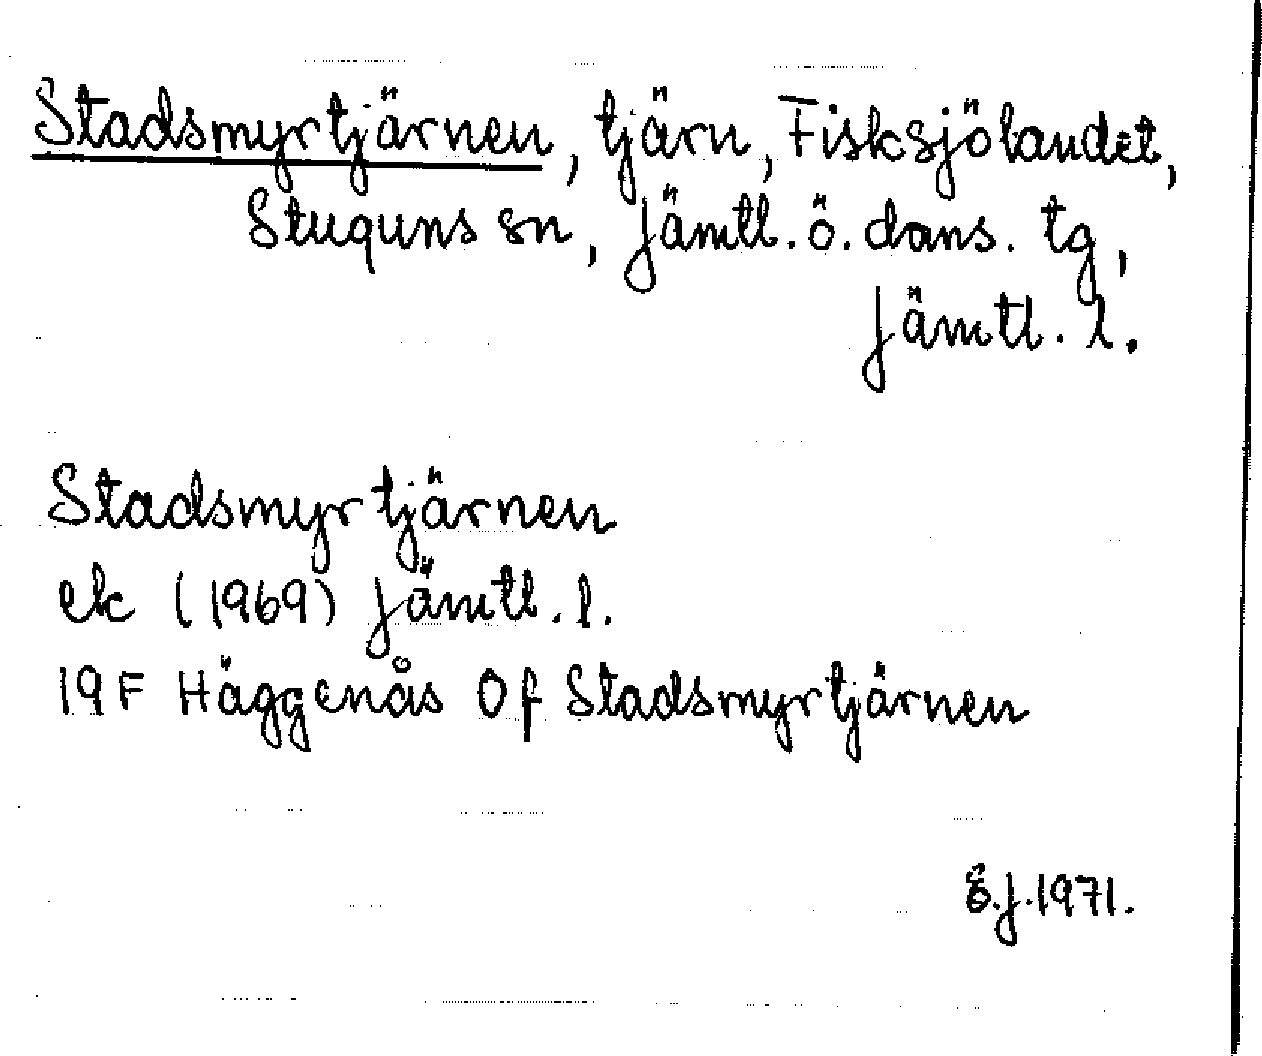 Stadsmyrtjärnen, tjärn, Fisksjölandet,
Stuguns sn, Jämtl. ö. doms. tg,
Jämtl. l.
Stadsmyrtjärnen
ek (1969) Jämtl. l.
19F Häggenås Of Stadsmyrtjärnen
E.J. 1971.